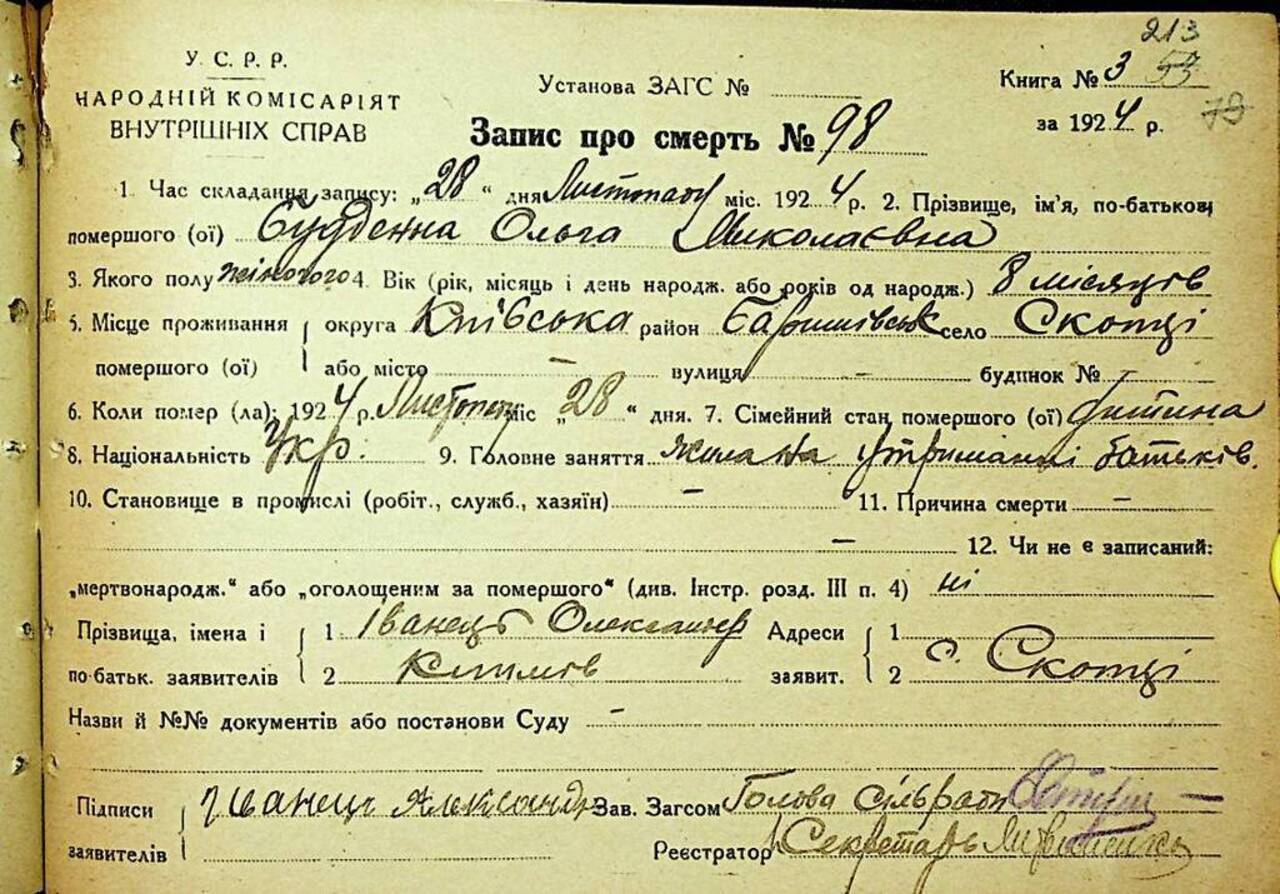 213
У. С. Р. Р.
НАРОДНІЙ КОМІСАРІЯТ
ВНУТРІШНІХ СПРАВ
Установа ЗАГС №
Книга № 3 53
за 1924 р. 79
Запис про смерть № 98
1. Час складання запису: „28“ дня Листопаду міс. 1924 р. 2. Прізвище, ім'я, по-батькові
помершого (ої) Будденна Ольга Миколаєвна
3. Якого полу жіночого 4. Вік (рік, місяць і день народж. або років од народж.) 8 місяців
5. Місце проживання округа Київська район Баришівськ село Скопці
помершого (ої) або місто — вулиця — будинок № —
6. Коли помер (ла): 1924 р. Листопад міс „28“ дня. 7. Сімейний стан помершого (ої) дитина
8. Національність Укр. 9. Головне заняття жила на утриманні батьків.
10. Становище в промислі (робіт., служб., хазяїн) — 11. Причина смерти —
— 12. Чи не є записаний:
„мертвонародж.“ або „оголощеним за помершого“ (див. Інстр. розд. III п. 4) ні
Прізвища, імена і 1 Іванець Олександр Адреси 1
по-батьк. заявителів 2 Климів заявит. 2 с. Скопці
Назви й №№ документів або постанови Суду —
Підписи Иванець Александр Зав. Загсом Голова сільради
заявителів Реєстратор Секретарь